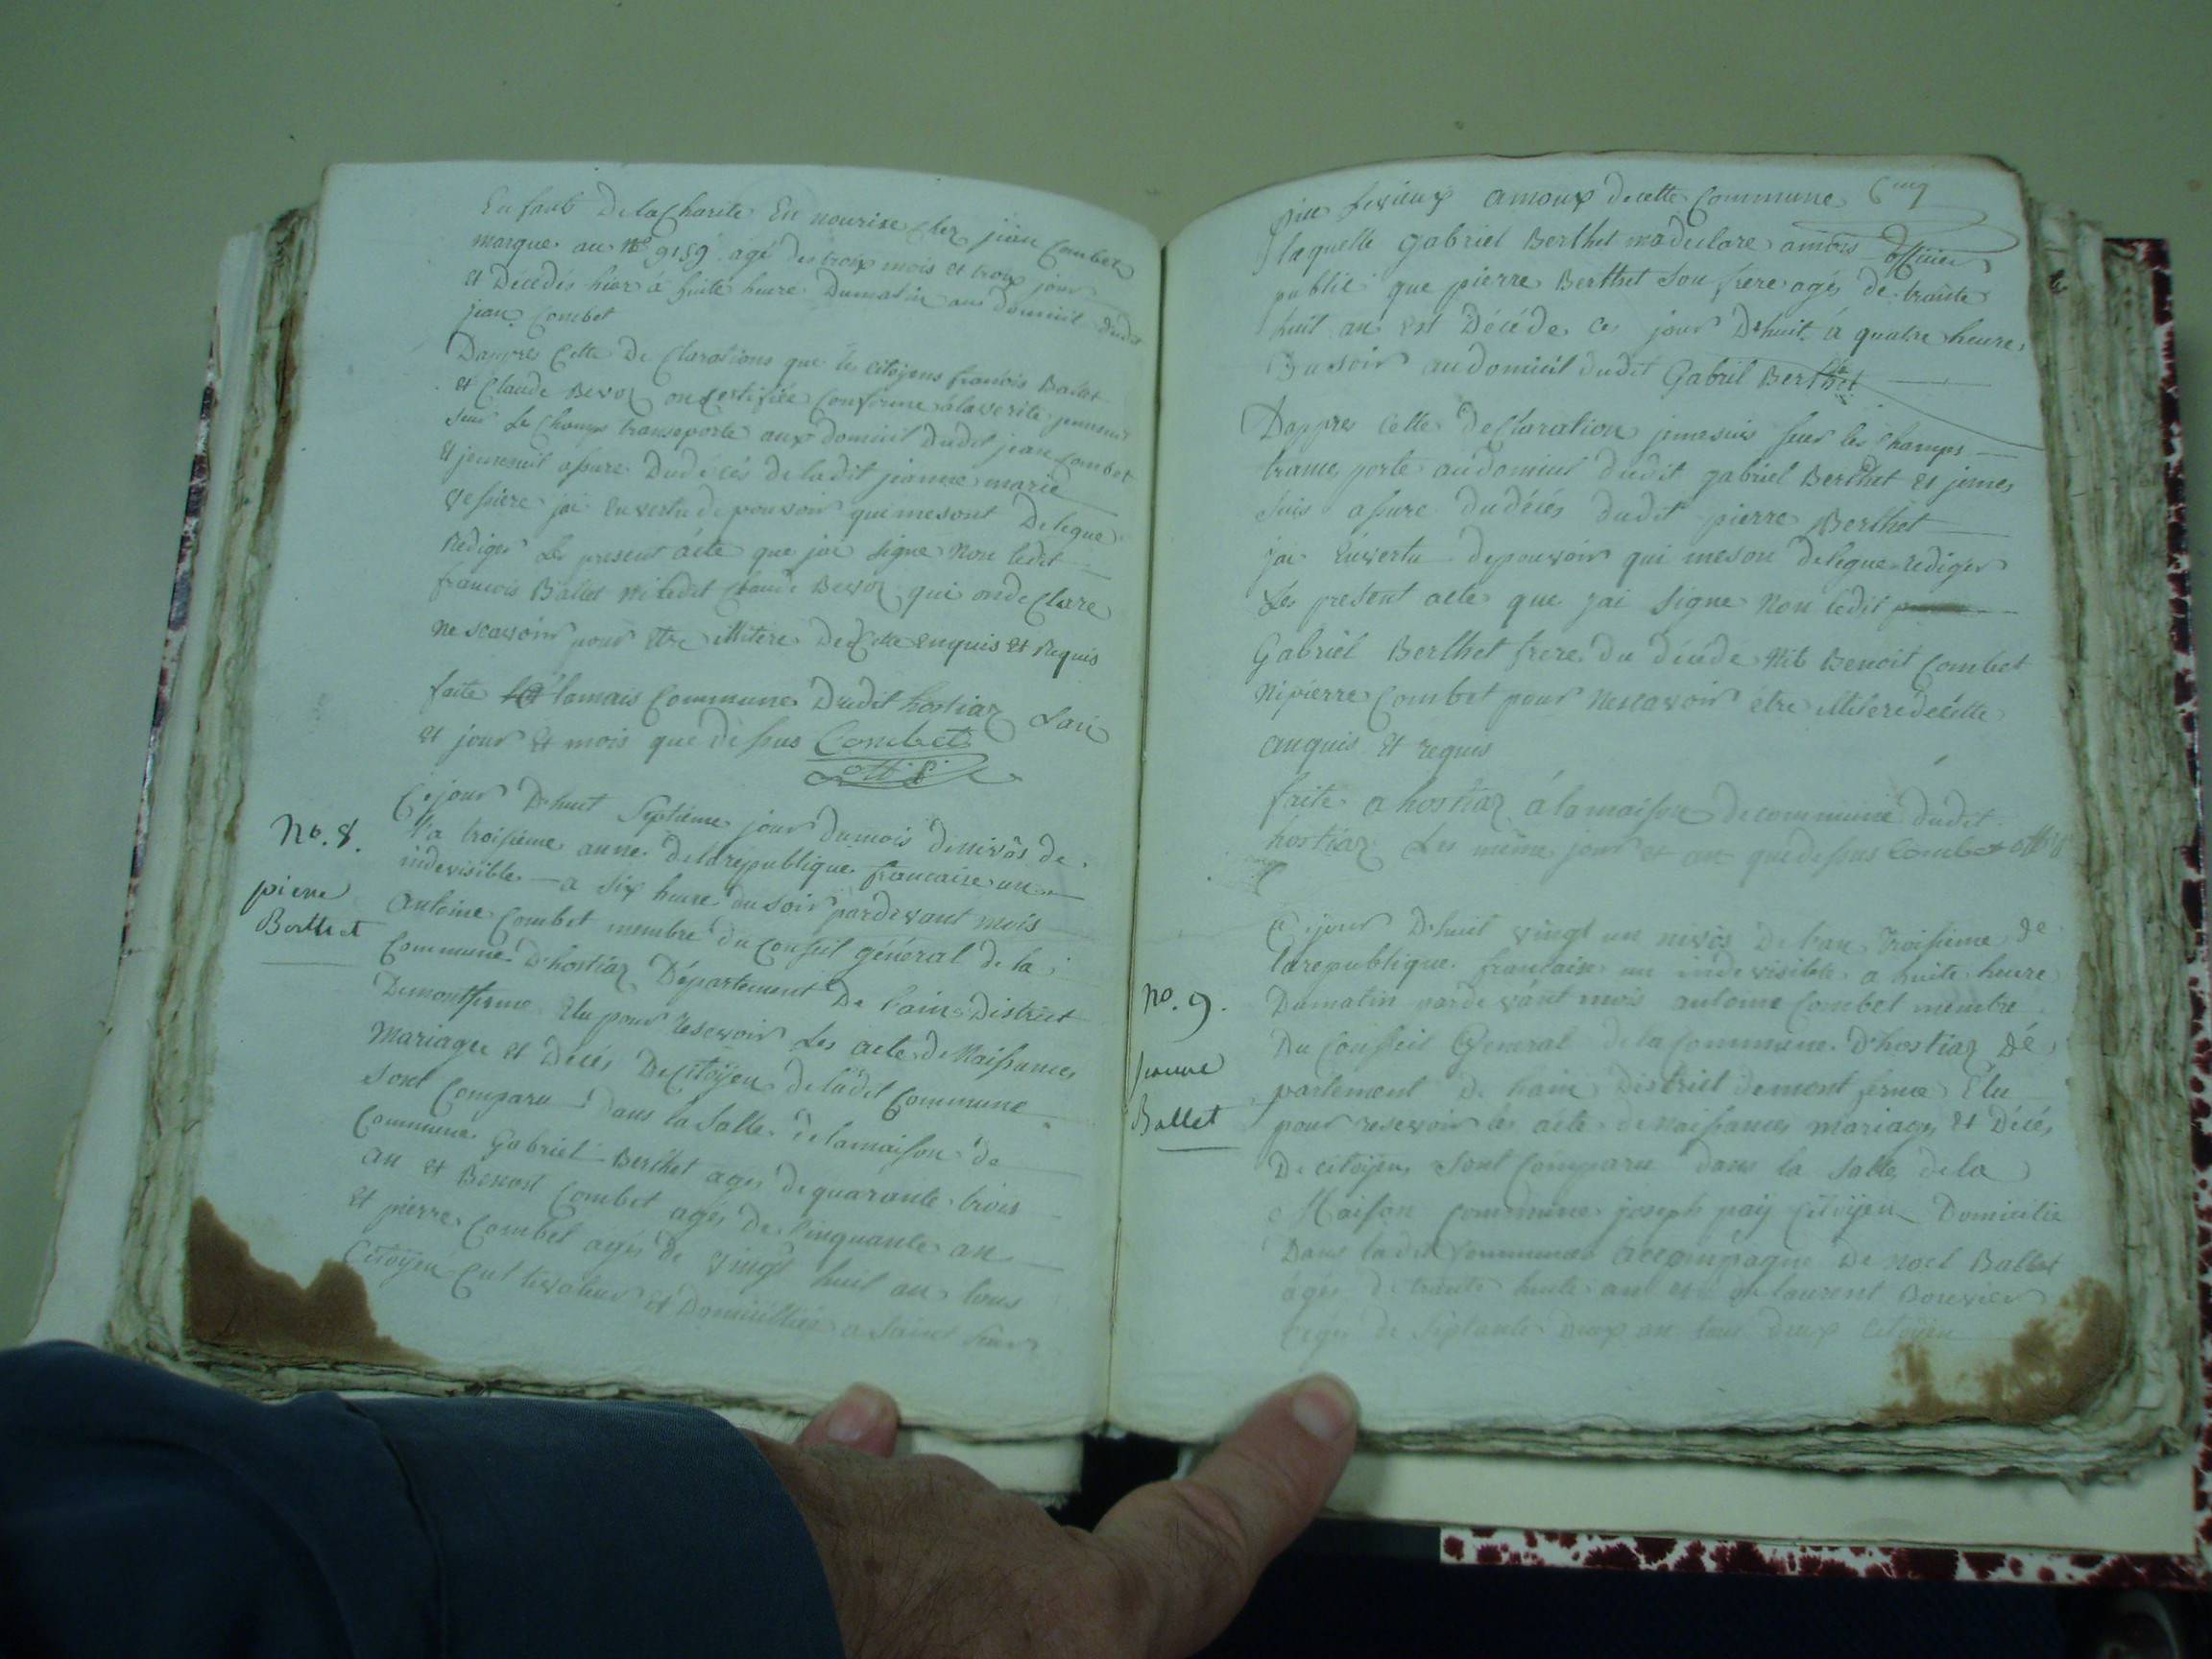 Enfant De la Charite En nourise Chez jean Combet
marque au No 9159 agé de troix mois et troix jour
et Décédés hier á huite heure Dumatin au domicil dudit
jean Combet
Dappres Cette De Clarations que les Citoyens francois Ballet
et Claude Bevoz on Certifiée Conforme alaverité jemesuis
sur Le Champs transporte aux domicil Dudit jean Combet
et jemesuit assure Dudécés de ladit jeanne marie
jai en vertu de pouvoir qui mesont Delegue
Rediger Le present acte que jai signe Non ledit
francois Ballet ni ledit Claude Bevoz qui onde Clare
ne scavoir pour etre illitere De Cette enquis et Requis
faite lamais Commune Dudit hostiaz Lan
et jour et mois que dessus Combet
off P
Ce jour D'huit Septieme jour dumois denivôs de
No. 8.
l'a troisieme anne delarepublique francaise une
indevisible — a six heure dusoir pardevant mois
pierre
Berthet
antoine Combet membre du Conseil général de la
Commune D'hostiaz Département De l'ain District
Demontferme Elu pour resevoir Les acte de Naissances
Mariages et Décés De Citoÿen de ladit Commune
sont Comparu Dans la salle de lamaison de
Commune Gabriel Berthet ages dequarante trois
an et Benoit Combet agés de Cinquante an
et pierre Combet agés de vingt huit an tous
Citoÿen Cultivateur et Domicillies a saint
amoux decette Commune Cinq
laquelle Gabriel Berthet madeclare amois officier
public que pierre Berthet son frere agés de trante
huit an est Décéde ce jour D'huit á quatre heure
Du soir au domicil dudit Gabriel Berthet
Dappres Cette déClaration jemesuis sur les Champs
trance porte audomicil dudit gabriel Berthet et jemes
suis assure dudécés dudit pierre Berthet
jai Envertu depouvoir qui meson delegue rediger
Les present acte que jai signe Non ledit
Gabriel Berthet frere du décéde Nit Benoit Combet
Ni pierre Combet pour Nescavoir etre illitere decette
anquis et requis
faite a hostiaz á lamaison decommune dudit
hostiaz Les même jour et an quedessus Combet off P
Ce jour D'huit vingt un nivôs De l'an Troisieme de
larepublique francaise un indevisible a huite heure
No. 9.
Dumatin pardevant mois antoine Combet membre
Du Conseil General dela Commune D'hostiaz Dé
Jeanne
Ballet
partement De hain District demont ferme Elu
pour resevoir les acte de naissances mariages et Décés
De citoÿens sont Comparu dans la salle dela
Maison Commune joseph paÿ Citoÿen Domicilie
Dans ladit Commune accompagne De noel Ballet
agés de trante huite an et de laurent Bouvier
agés de septante deux an tous deux Citoÿen